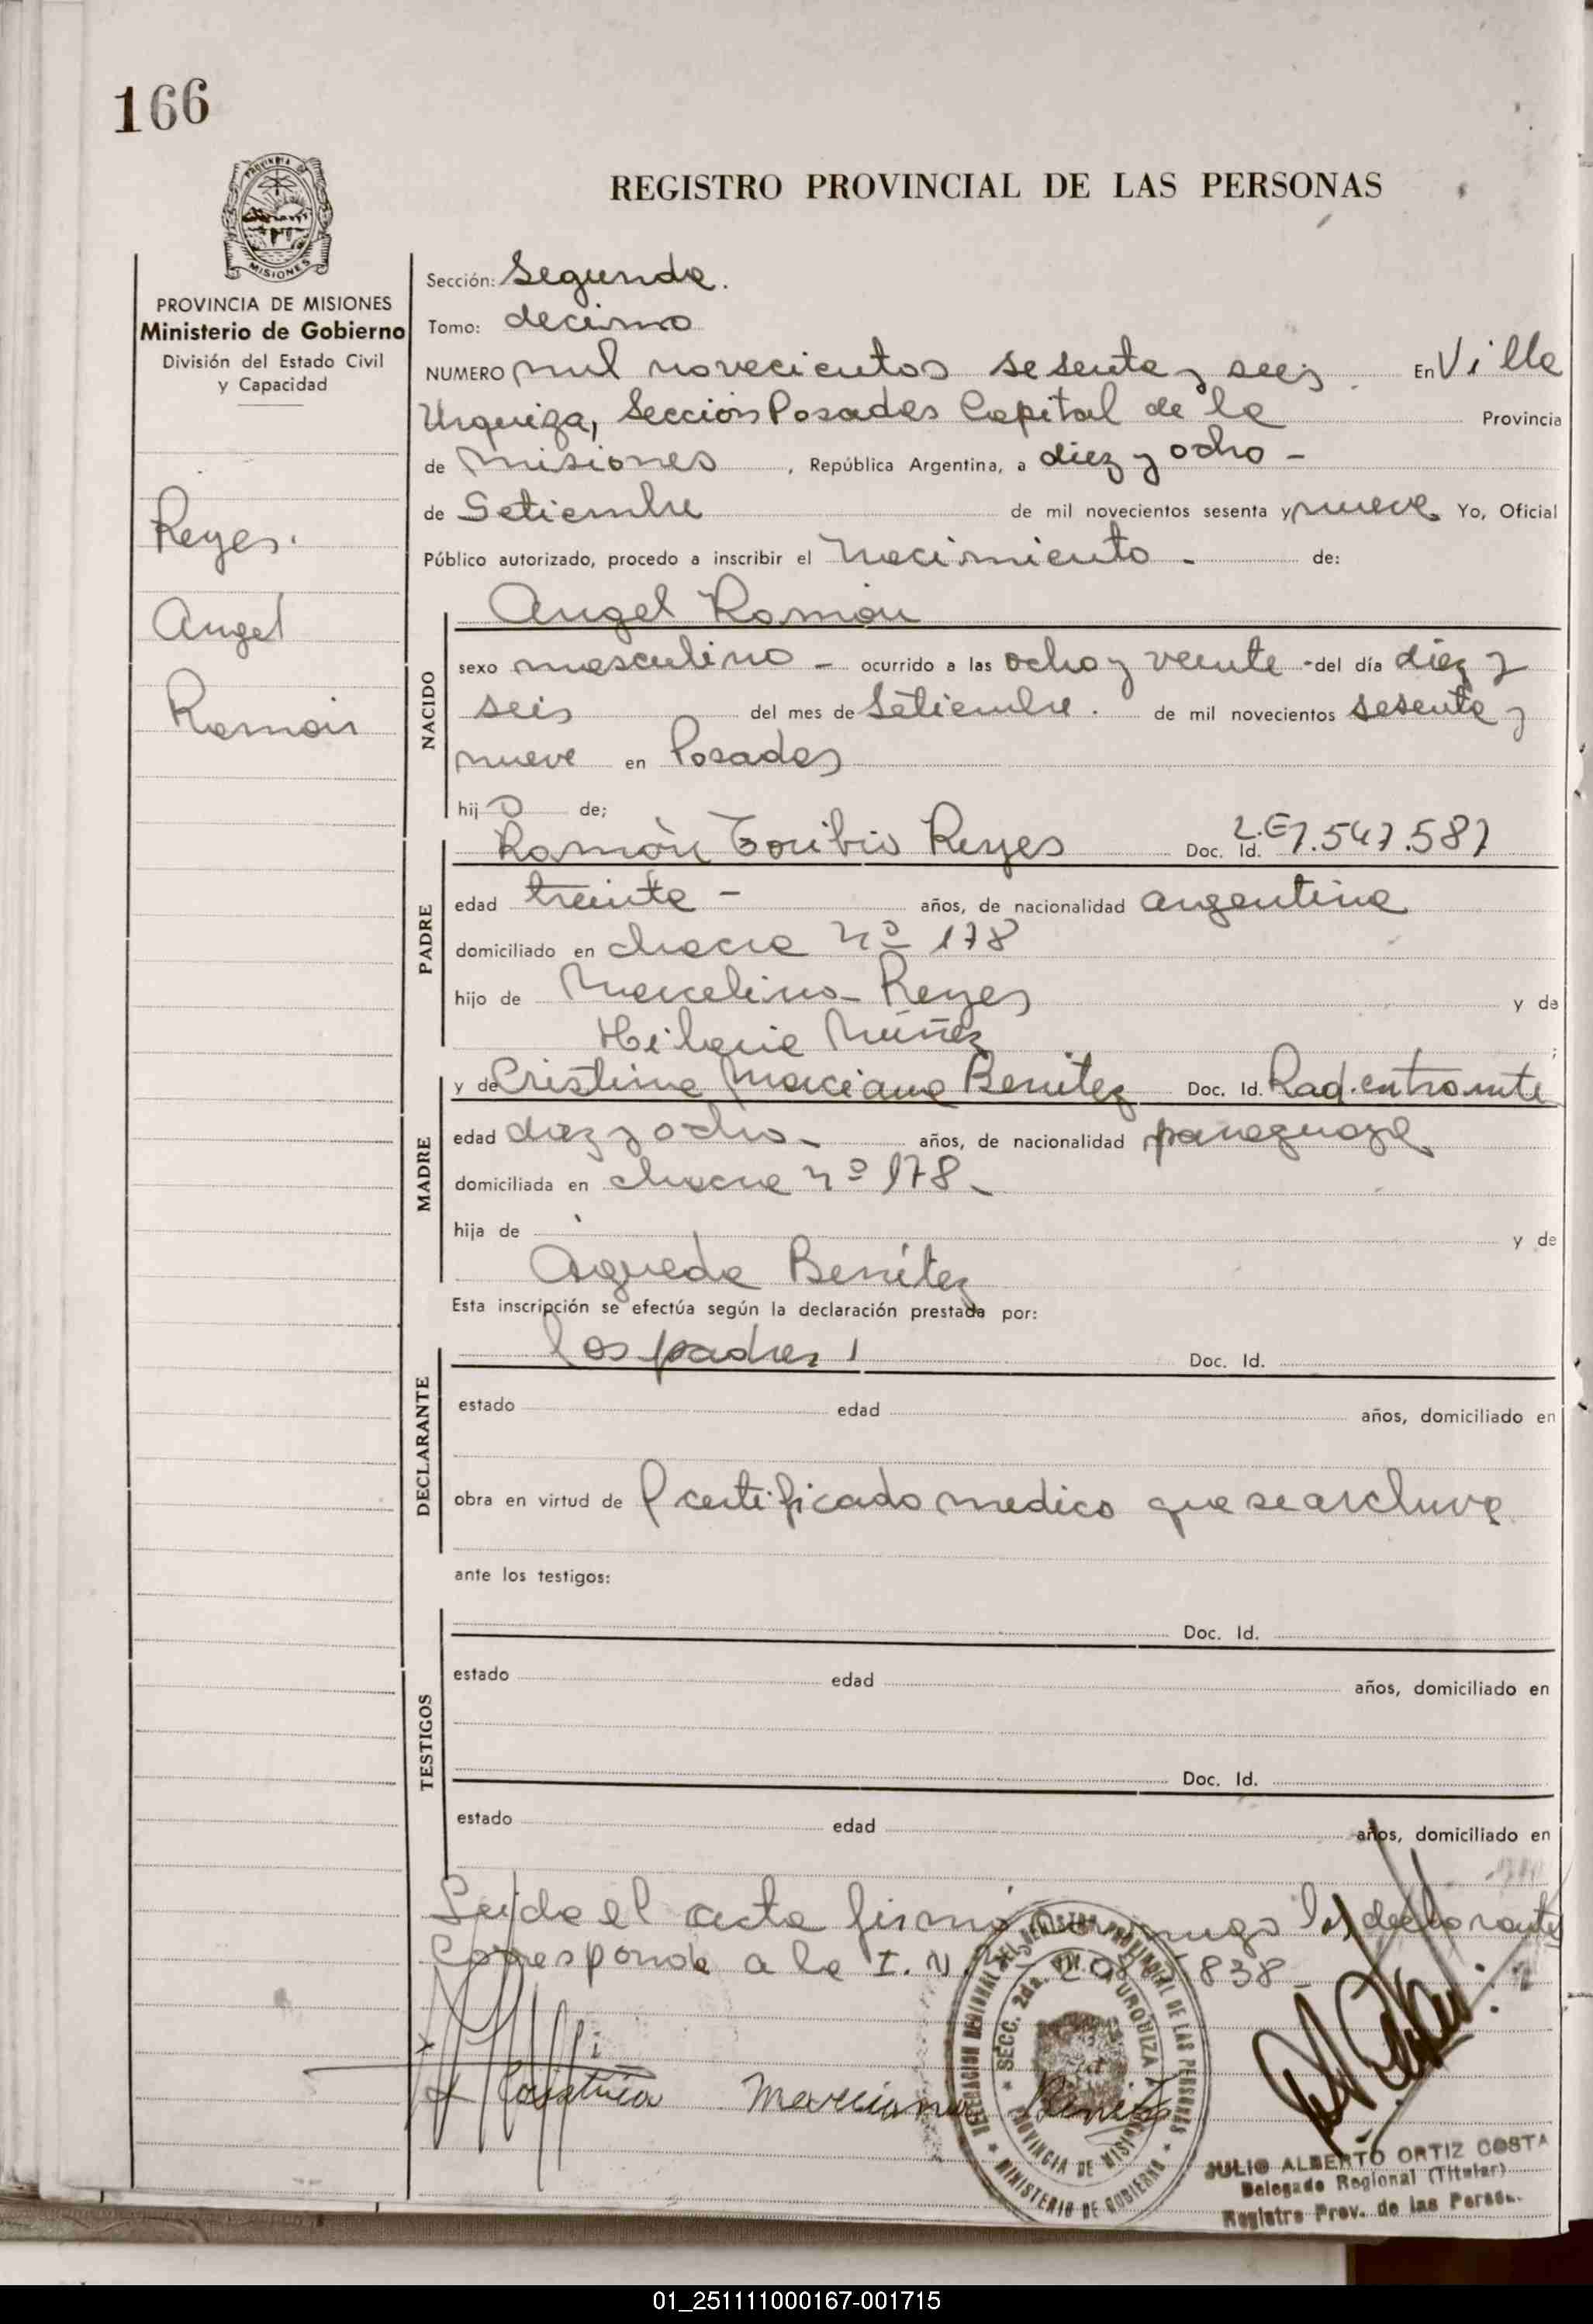 166
REGISTRO PROVINCIAL DE LAS PERSONAS
PROVINCIA DE MISIONES
Ministerio de Gobierno
División del Estado Civil
y Capacidad
Reyes.
Angel
Ramón
Sección: Segunda.
Tomo: decimo
NUMERO mil novecientos sesenta y seis. En Villa
Urquiza, Sección Posadas Capital de la Provincia
de Misiones, República Argentina, a diez y ocho -
de Setiembre de mil novecientos sesenta y nueve Yo, Oficial
Público autorizado, procedo a inscribir el Nacimiento - de:
NACIDO
Angel Ramón
sexo masculino - ocurrido a las ocho y veinte - del día diez y
seis del mes de Setiembre. de mil novecientos sesenta y
nueve en Posadas
hijo de;
PADRE
Ramón Toribio Reyes Doc. Id. L.E 7.547.587
edad treinta - años, de nacionalidad argentina
domiciliado en chacra nº 178
hijo de Marcelino Reyes y de
Hilaria Núñez ;
MADRE
y de Cristina Marciana Benítez Doc. Id. Rad. en tramite
edad diez y ocho - años, de nacionalidad paraguaya
domiciliada en chacra nº 178 -
hija de y de
Agueda Benítez
Esta inscripción se efectúa según la declaración prestada por:
DECLARANTE
los padres Doc. Id.
estado edad años, domiciliado en
obra en virtud de certificado medico que se archiva
ante los testigos:
TESTIGOS
Doc. Id.
estado edad años, domiciliado en
Doc. Id.
estado edad años, domiciliado en
Leida el acta firma conmigo los declarantes
Corresponde a la I. N. 838 -
Marciana Benitez
DELEGACION REGIONAL DEL REGISTRO PROVINCIAL DE LAS PERSONAS
SECC. 2da. URQUIZA
PROVINCIA DE MISIONES
MINISTERIO DE GOBIERNO
JULIO ALBERTO ORTIZ COSTA
Delegado Regional (Titular)
Registro Prov. de las Person.
01_251111000167-001715